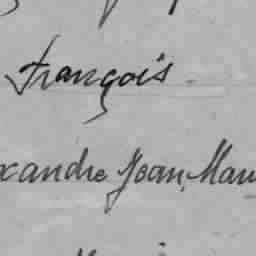 François
xandre Jean Mau